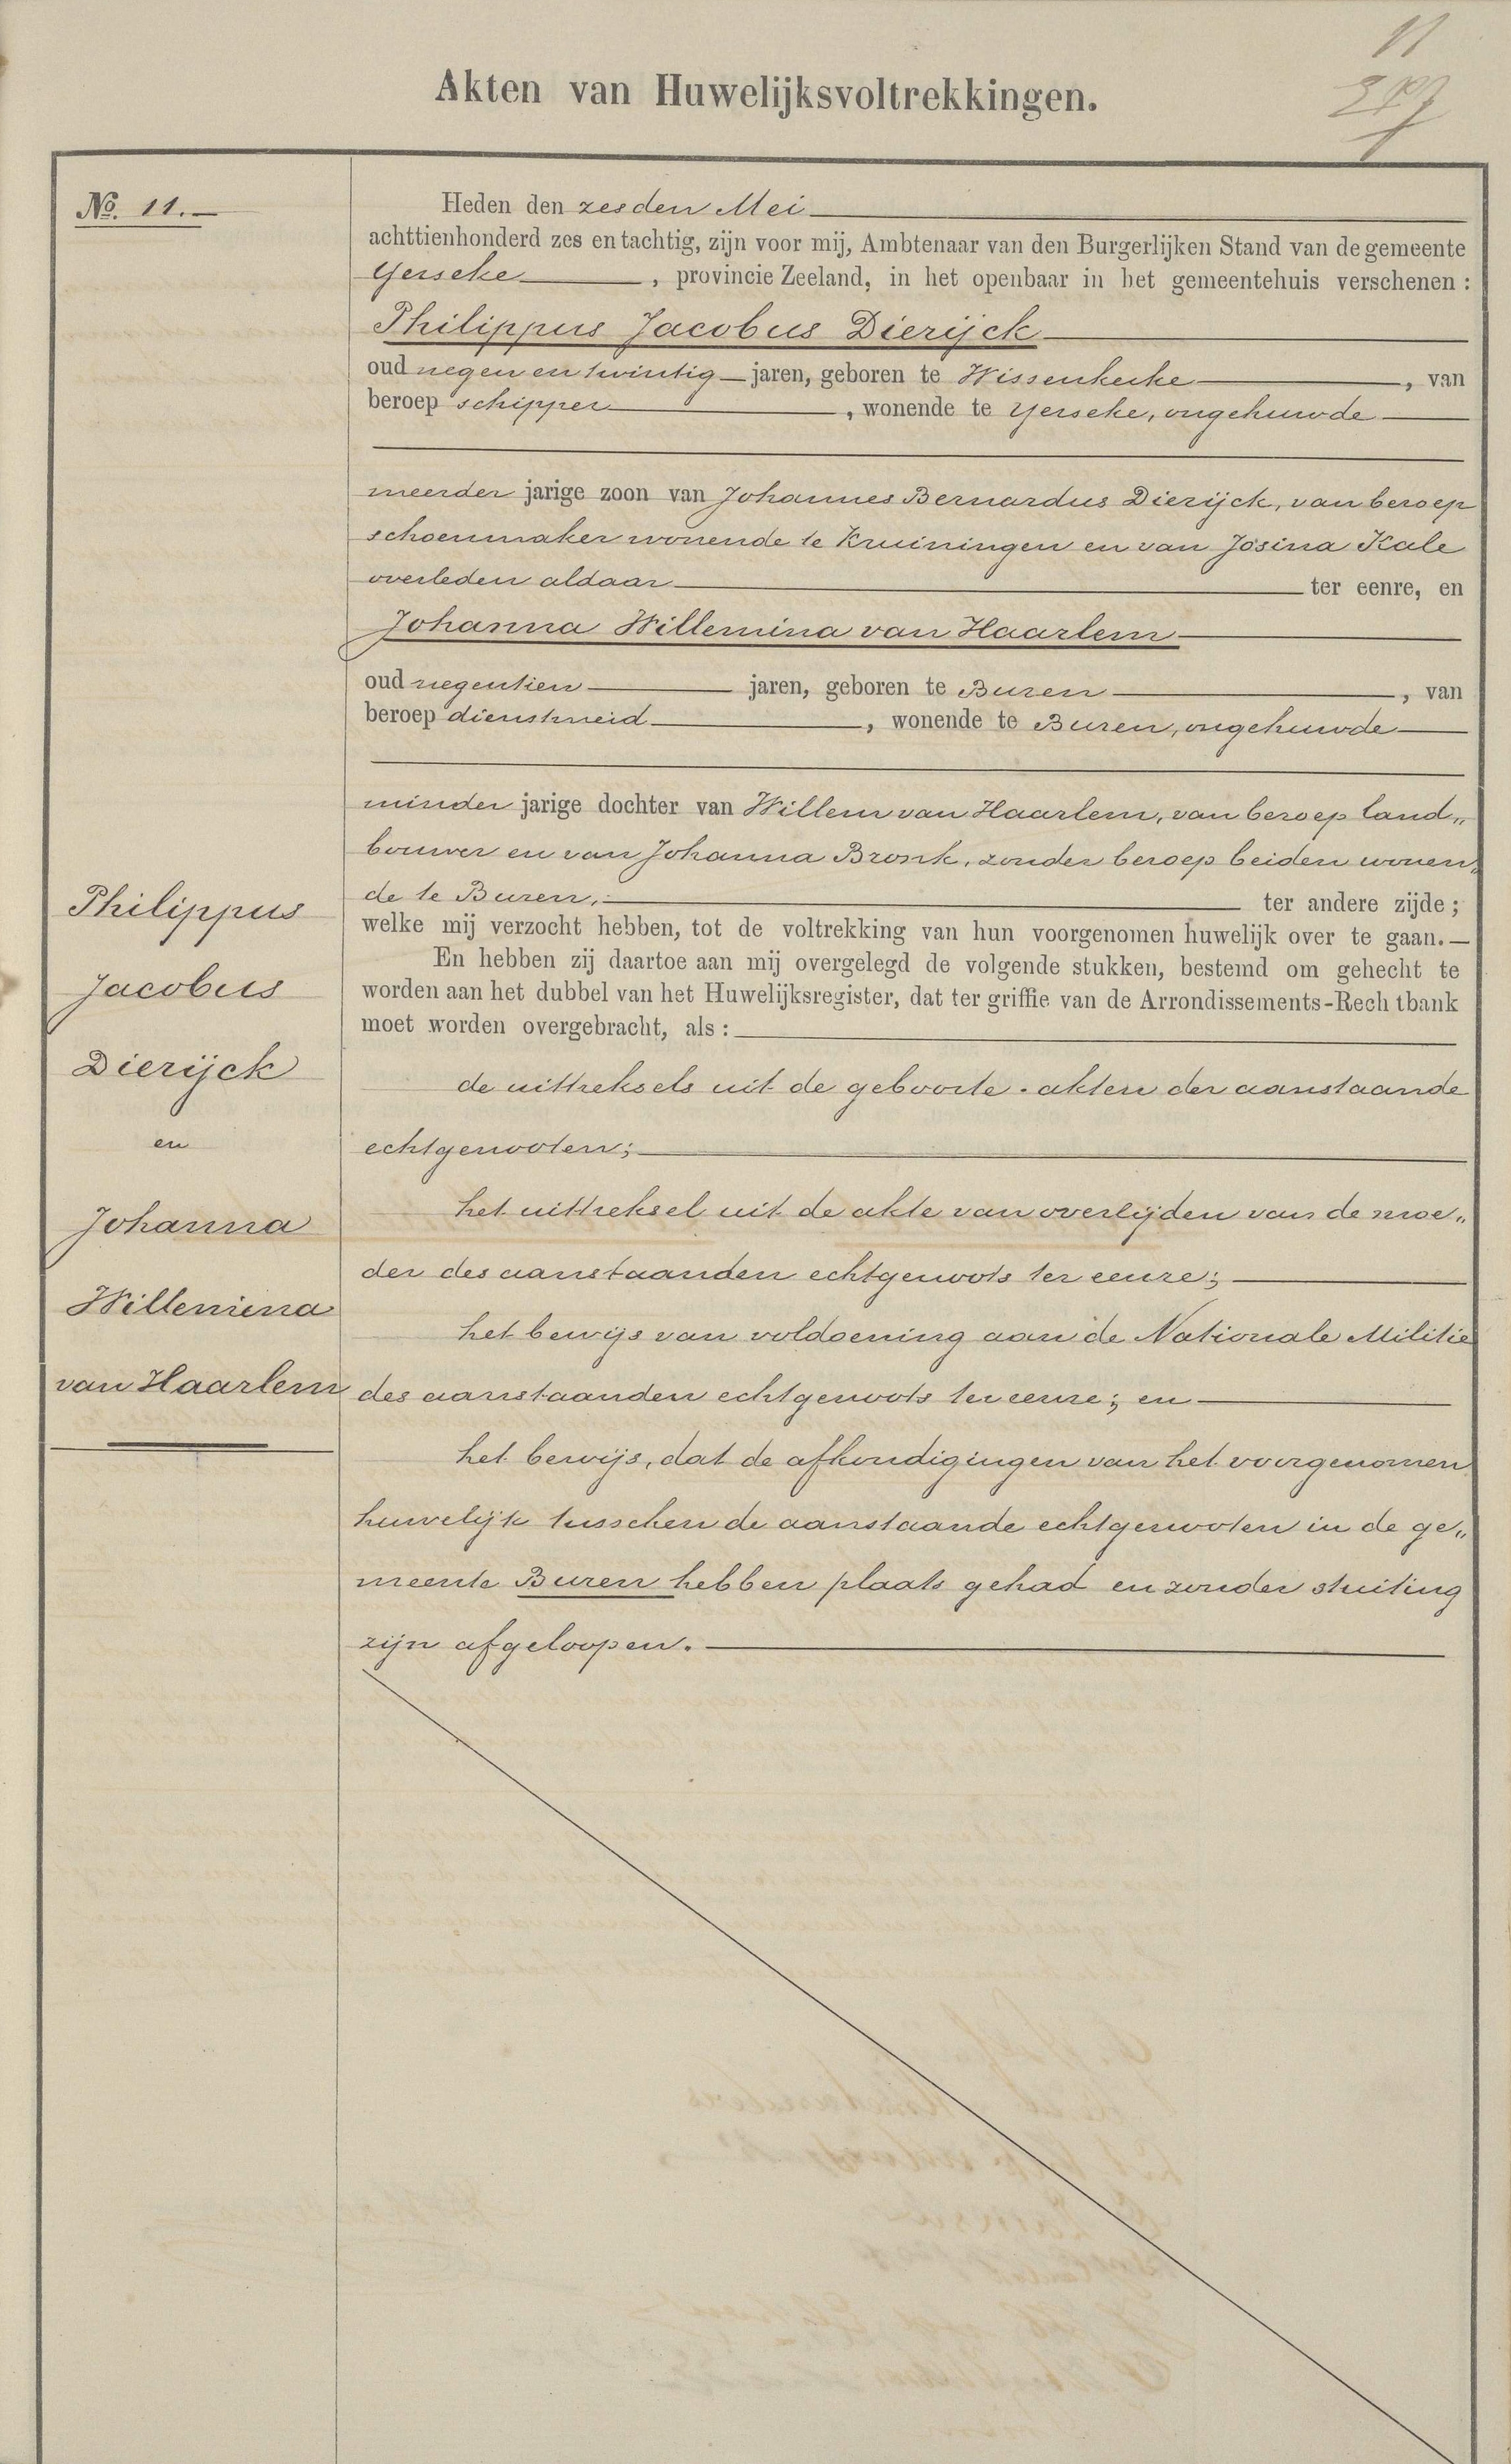 11
Akten van Huwelijksvoltrekkingen.
No. 11.—
Heden den zesden Mei
achttienhonderd zes en tachtig, zijn voor mij, Ambtenaar van den Burgerlijken Stand van de gemeente
Yerseke, provincie Zeeland, in het openbaar in het gemeentehuis verschenen:
Philippus Jacobus Dierijck
oud negen en twintig jaren, geboren te Wissenkerke, van
beroep schipper, wonende te Yerseke, ongehuwde
meerder jarige zoon van Johannes Bernardus Dierijck, van beroep
schoenmaker wonende te Kruiningen en van Josina Kale
overleden aldaar ter eenre, en
Johanna Willemina van Haarlem
oud negentien jaren, geboren te Buren, van
beroep dienstmeid, wonende te Buren, ongehuwde
minder jarige dochter van Willem van Haarlem, van beroep land„
bouwer en van Johanna Bronk, zonder beroep beiden wonen„
de te Buren, ter andere zijde;
welke mij verzocht hebben, tot de voltrekking van hun voorgenomen huwelijk over te gaan.—
En hebben zij daartoe aan mij overgelegd de volgende stukken, bestemd om gehecht te
worden aan het dubbel van het Huwelijksregister, dat ter griffie van de Arrondissements-Rech tbank
moet worden overgebracht, als:
de uittreksels uit de geboorte-akten der aanstaande
echtgenooten;
het uittreksel uit de akte van overlijden van de moe„
der des aanstaanden echtgenoots ter eenre;
het bewijs van voldoening aan de Nationale Militie
des aanstaanden echtgenoots ter eenre; en
het bewijs, dat de afkondigingen van het voorgenomen
huwelijk tusschen de aanstaande echtgenooten in de ge„
meente Buren hebben plaats gehad en zonder stuiting
zijn afgeloopen.
Philippus
Jacobus
Dierijck
en
Johanna
Willemina
van Haarlem